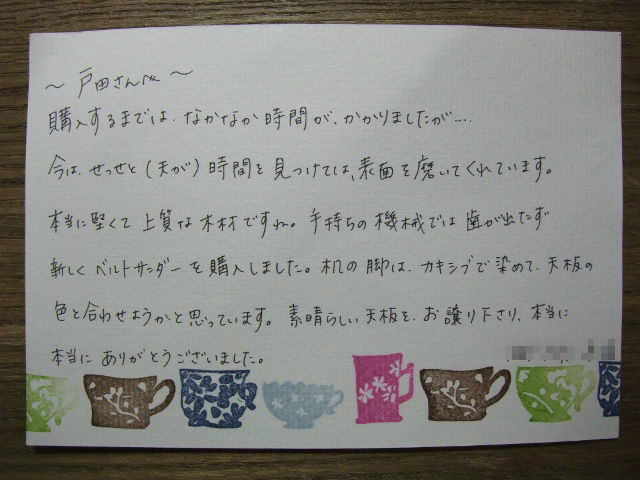 ～ 戸田さんへ ～
購入するまでは、なかなか時間が、かかりましたが....
今は、せっせと(夫が)時間を見つけては、表面を磨いてくれています。
本当に堅くて上質な木材ですね。手持ちの機械では歯が出たず
新しくベルトサンダーを購入しました。机の脚は、カキシブで染めて、天板の
色と合わせようかと思っています。素晴らしい天板を、お譲り下さり、本当に
本当にありがとうございました。